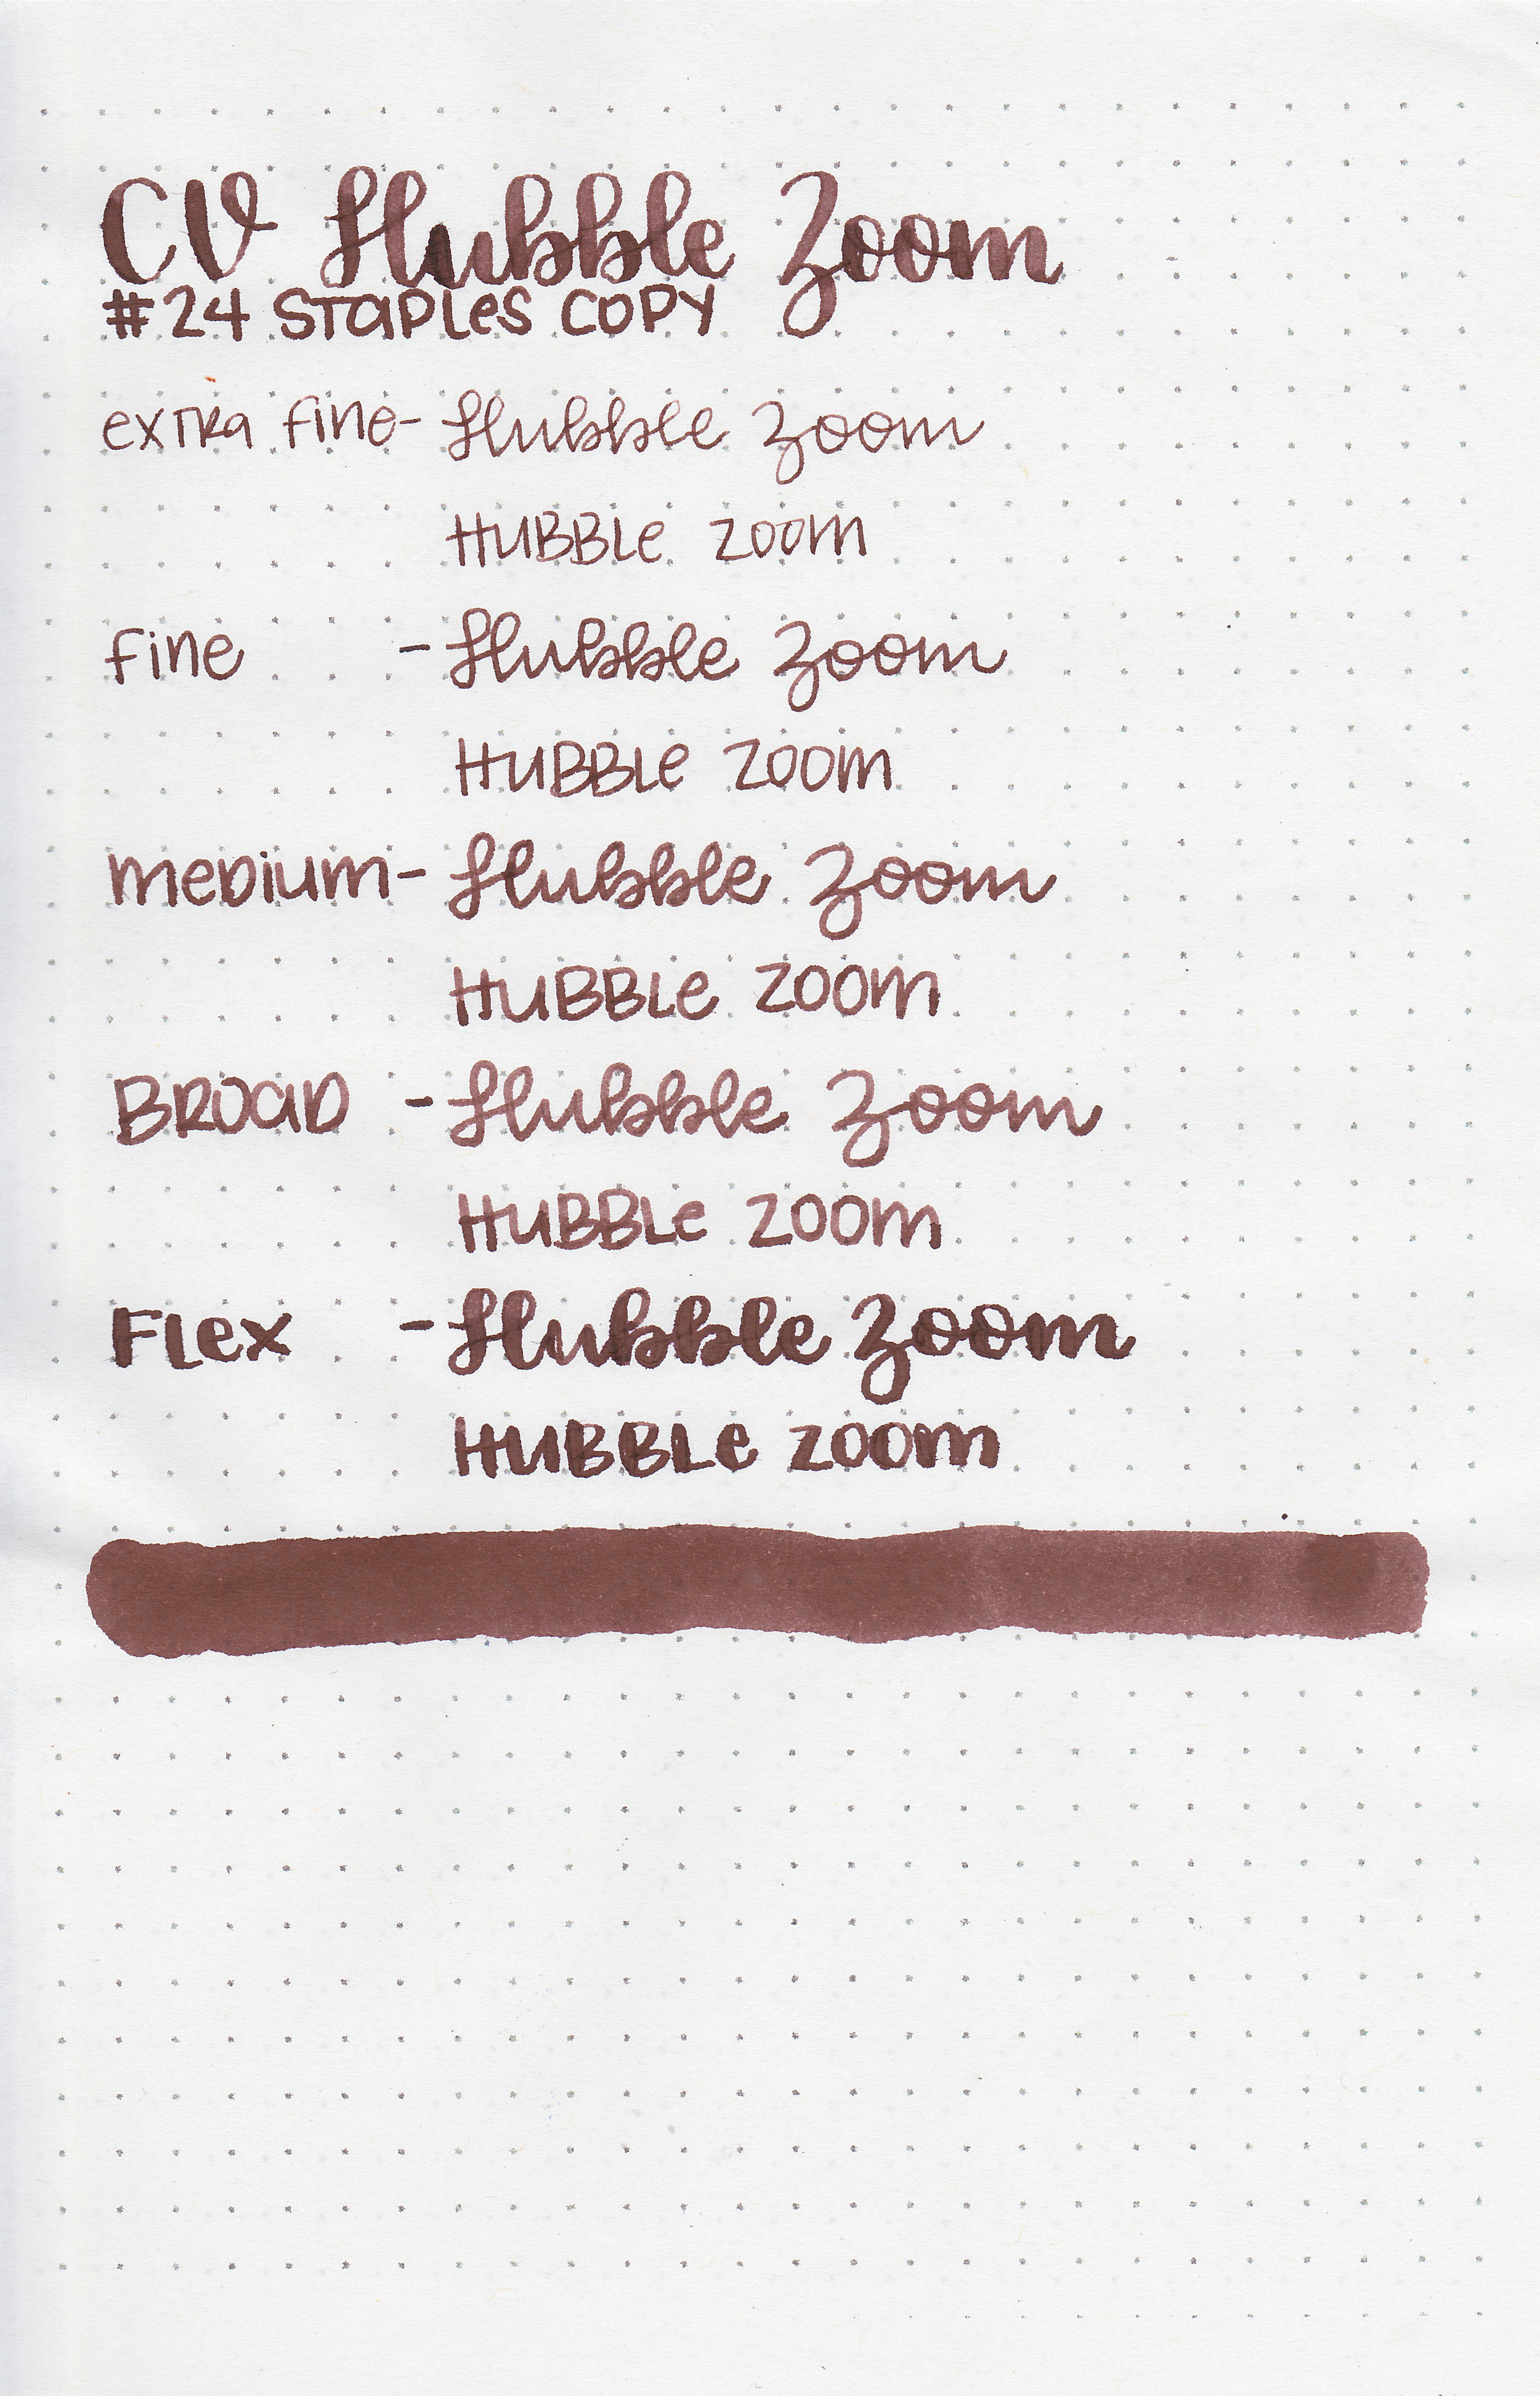 CV Hubble Zoom
#24 STAPLES COPY
extra fine- Hubble Zoom
HUBBLe ZOOM
fine - Hubble Zoom
HUBBLe ZOOM
meDium- Hubble Zoom
HUBBLe ZOOM
BROAD - Hubble Zoom
HUBBLe ZOOM
FLex - Hubble Zoom
HUBBLe ZOOM